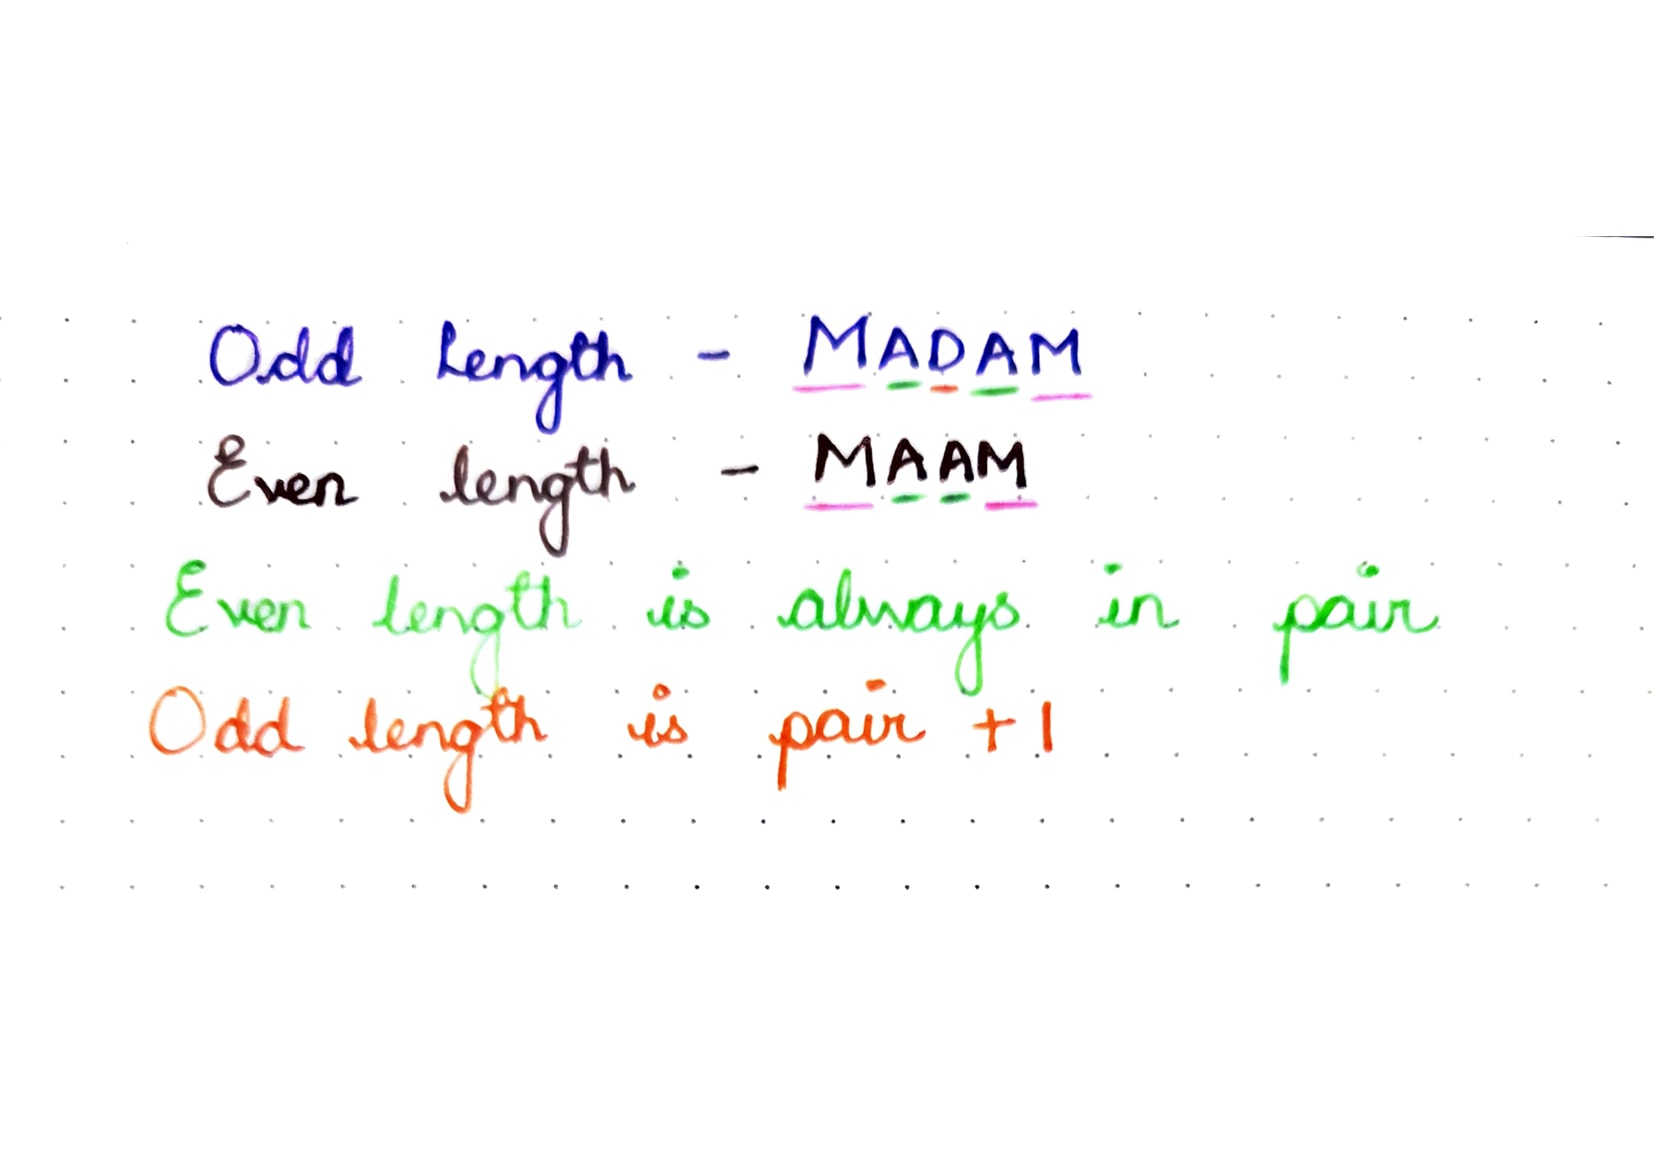 Odd Length - MADAM
Even length - MAAM
Even length is always in pair
Odd length is pair +1